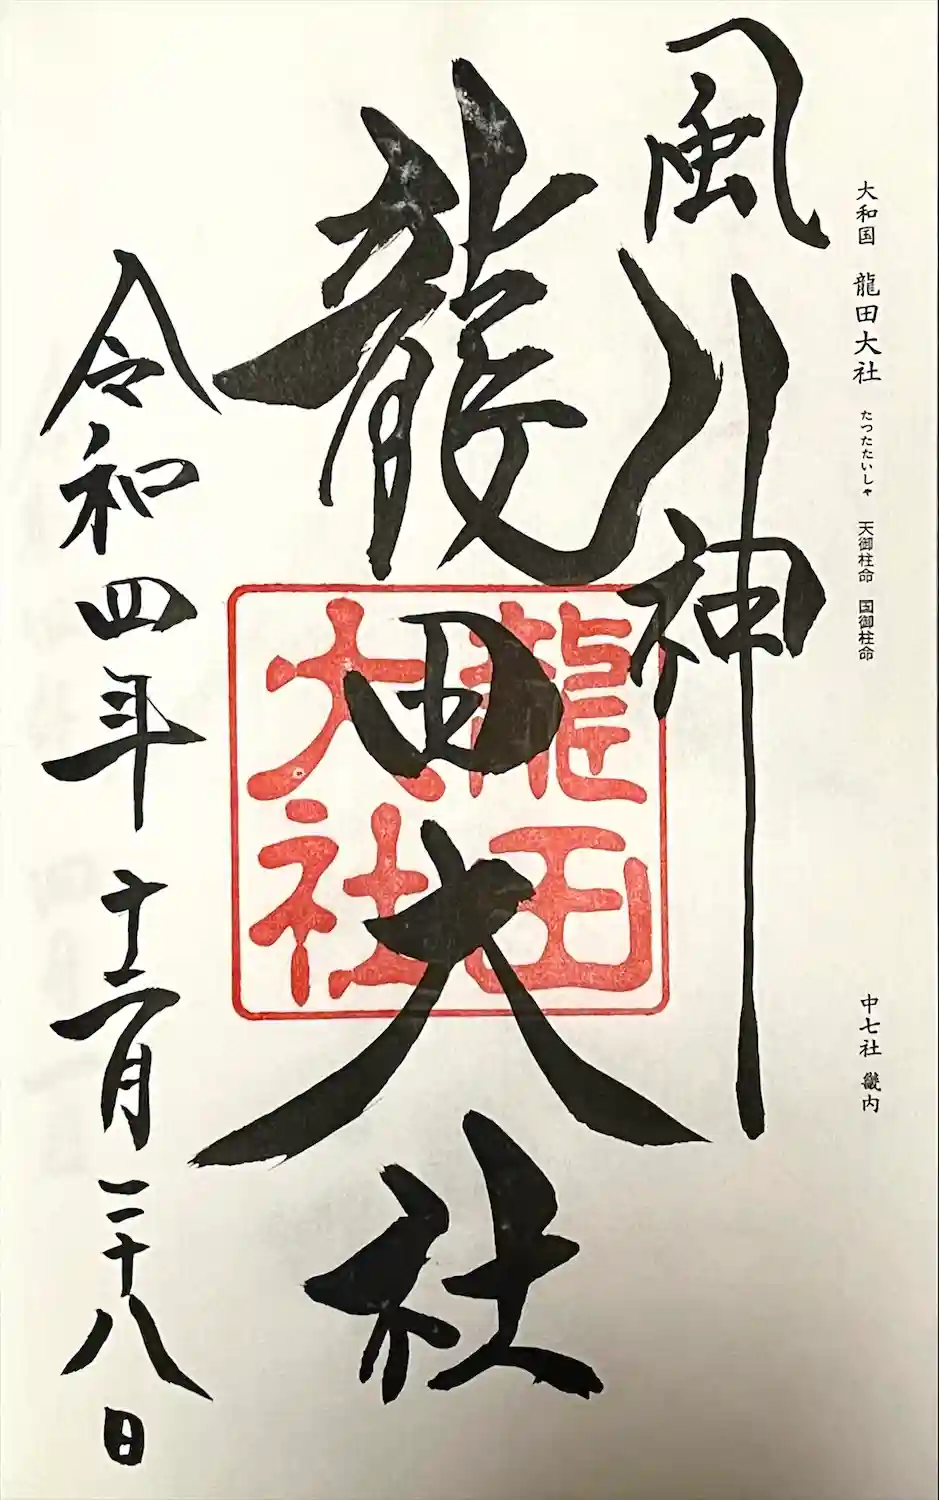 大和国 龍田大社 たつたたいしゃ 天御柱命 国御柱命 中七社 畿内
風神
龍田大社
龍田
大社
令和四年十二月二十八日